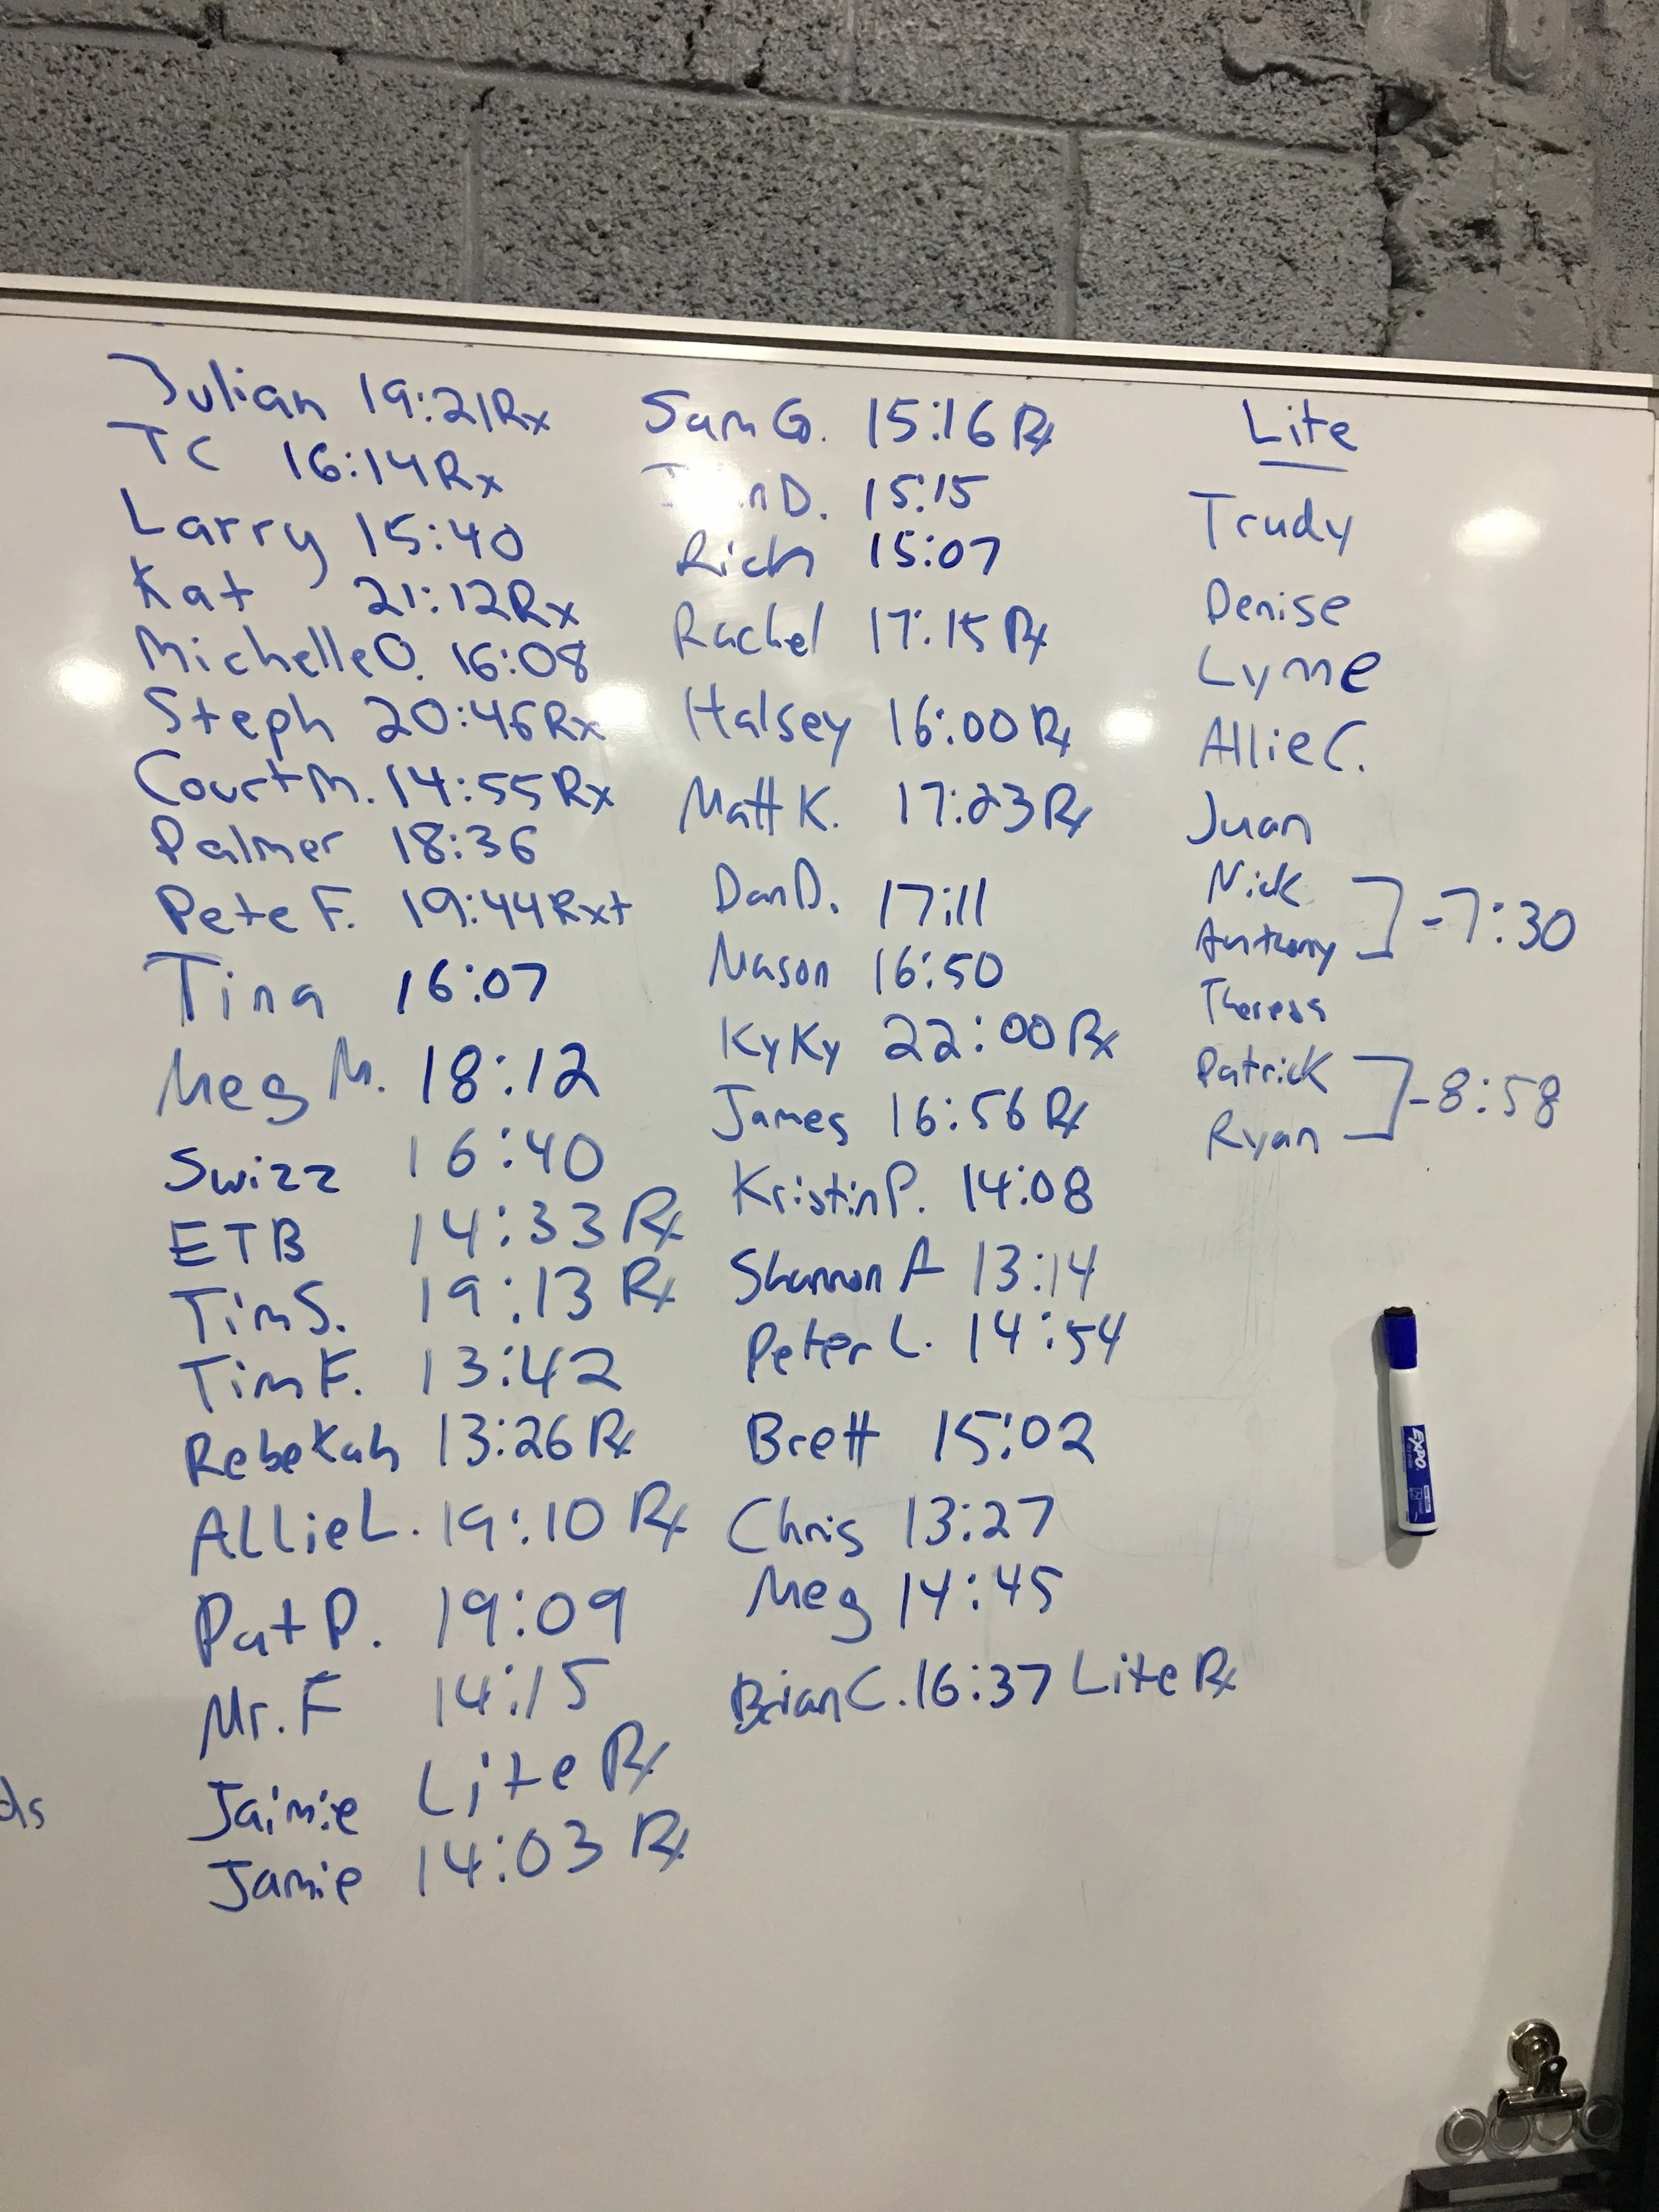 Julian 19:21 Rx
TC 16:14 Rx
Larry 15:40
Kat 21:12 Rx
Michelle O. 16:08
Steph 20:46 Rx
Court M. 14:55 Rx
Palmer 18:36
Pete F. 19:44 Rx+
Tina 16:07
Meg M. 18:12
Swizz 16:40
ETB 14:33 Rx
Tim S. 19:13 Rx
Tim F. 13:42
Rebekah 13:26 Rx
Allie L. 19:10 Rx
Pat P. 19:09
Mr. F 14:15
Jaimie Lite Rx
Jamie 14:03 Rx
ds
Sam G. 15:16 Rx
D. 15:15
Rich 15:07
Rachel 17:15 Rx
Halsey 16:00 Rx
Matt K. 17:23 Rx
Dan D. 17:11
Mason 16:50
KyKy 22:00 Rx
James 16:56 Rx
Kristin P. 14:08
Shannon A 13:14
Peter L. 14:54
Brett 15:02
Chris 13:27
Meg 14:45
Brian C. 16:37 Lite Rx
Lite
Trudy
Denise
Lynne
Allie C.
Juan
Nick
Anthony
-7:30
Theresa
Patrick
Ryan
-8:58
EXPO